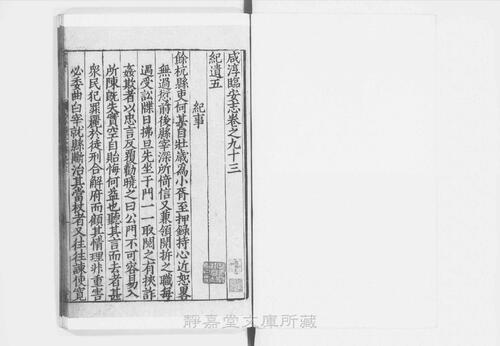 咸淳臨安志卷之九十三
紀遺五
紀事
餘杭縣吏何某自壯歳為小胥至押錄持心近恕畧
無過愆前後縣宰深所倚信又兼領開拆之職每
遇受訟牒日拂旦先坐于門一一取閱之有挾詐
姦欺者以忠言反覆勸曉之曰公門不可容易入
所陳旣失實空自貽悔何益也聽其言而去者甚
衆民犯罪麗於徒刑合解府而顧其情理非重害
必委曲白宰就縣斷治其當杖者又往往諫使寬
靜嘉堂文庫所藏